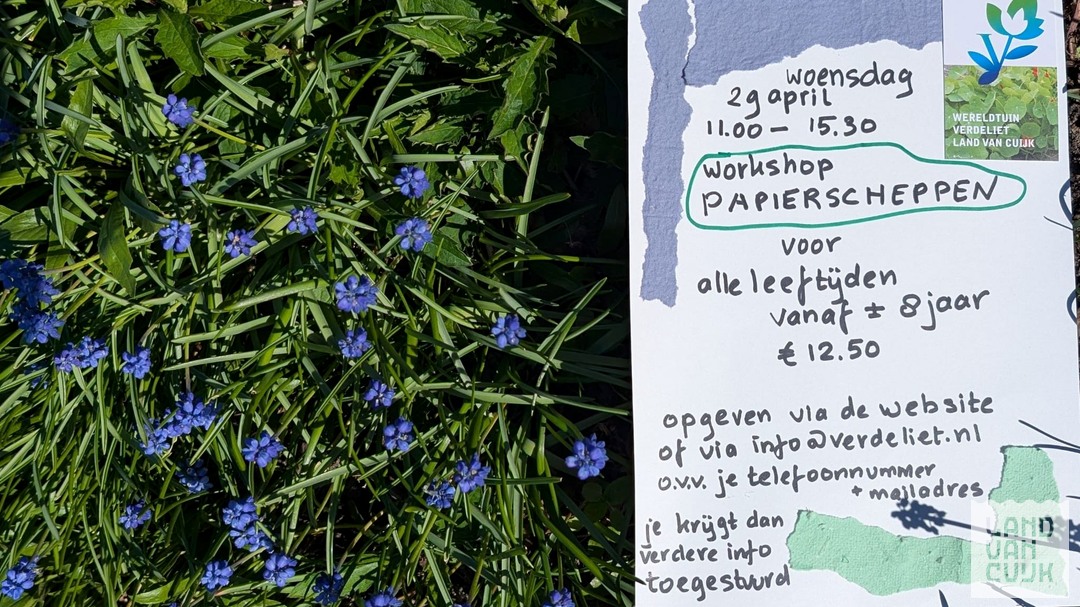 woensdag
29 april
11.00 - 15.30
workshop
PAPIERSCHEPPEN
voor
alle leeftijden
vanaf ± 8 jaar
€ 12.50
opgeven via de website
of via info@verdeliet.nl
o.v.v. je telefoonnummer
+ mailadres
je krijgt dan
verdere info
toegestuurd
WERELDTUIN
VERDELIET
LAND VAN CUIJK
LAND
VAN
CUIJK